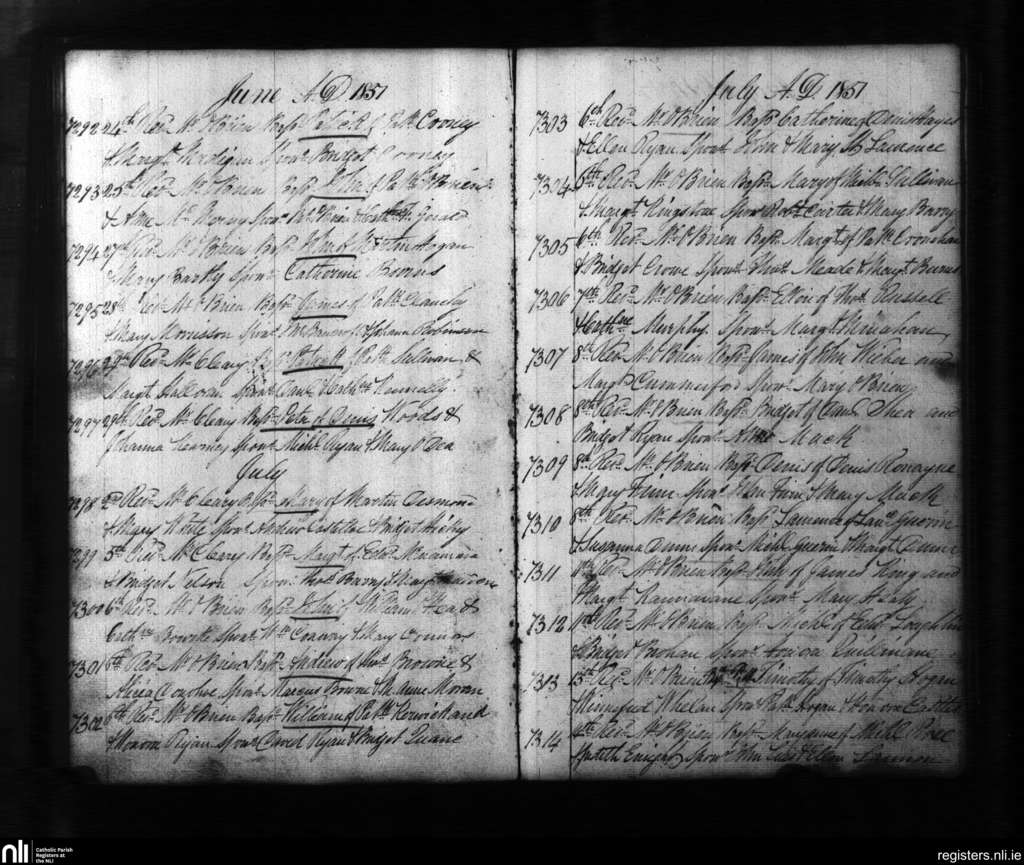 June A.D. 1851
7292 24th Revd Mr O'Brien Bapd Patrick of Patk Cooney
& Margt Madigan Sponr Bridget Cooney
7293 25th Revd Mr O'Brien Bapd John of Patk O'Brien
& Anne Sponr Patk Brien &
7294 27th Revd Mr O'Brien Bapd John of Martin Hogan
& Mary Bartly Sponr Catherine Browns
7295 28th Revd Mr O'Brien Bapd James of Patk Clanchy
& Mary Morrisson Sponr & Johana Robinson
7296 29th Revd Mr Cleary Bapd Patrick Patk Sullivan &
Margt Halloran Sponr Danl & Cathne Connolly
7297 29th Revd Mr Cleary Bapd Peter of Denis Woods &
Johanna Kearney Sponr Michl Ryan & Mary O'Dea
July
7298 2nd Revd Mr Cleary Bapd Mary of Martin Desmond
& Mary White Sponr Andrew Costello & Bridget
7299 5th Revd Mr Cleary Bapd Margt of Mcnamara
& Bridget Nelson Sponr Thos Burns & Margt
7300 6th Revd Mr O'Brien Bapd John of William Hea &
Cathne Bourke Sponr Wm Conway & Mary Connors
7301 6th Revd Mr O'Brien Bapd Andrew of Browne &
Alicia Donohoe Sponr Marcus Browne & M. Anne Moran
7302 6th Revd Mr O'Brien Bapd William of Patk Kerwick and
& Honora Ryan Sponr David Ryan & Bridget Duane
July A.D. 1851
7303 6th Revd Mr O'Brien Bapd Catherine of Denis Hayes
& Ellen Ryan Sponr John & Mary St Laurence
7304 6th Revd Mr O'Brien Bapd Mary of Michl Sullivan
& Margt Kingston Sponr Robt Carter & Mary Barry
7305 6th Revd Mr O'Brien Bapd Margt of Patk Cronehan
& Bridget Crowe Sponr Thos Meade & Margt Burns
7306 7th Revd Mr O'Brien Bapd Ellen of Thos Russell
& Cathne Murphy Sponr Margt Minahan
7307 8th Revd Mr O'Brien Bapd James of John Weber and
Margt Cummerford Sponr Mary O'Brien
7308 8th Revd Mr O'Brien Bapd Bridget of Danl Shea and
Bridget Ryan Sponr Anne Mack
7309 8th Revd Mr O'Brien Bapd Denis of Denis Ronayne
& Mary Finn Sponr Ellen Finn & Mary Mack
7310 8th Revd Mr O'Brien Bapd Laurence of Laue Guerin
& Susanna Dunne Sponr Michl Guerin & Margt Dunne
7311 11th Revd Mr O'Brien Bapd of James King and
Margt Kannavane Sponr Mary Healy
7312 11th Revd Mr O'Brien Bapd Michl of Edwd Loughlin
& Bridget Mohan Sponr Honora Quillinane
7313 13th Revd Mr O'Brien Bapd Timothy of Timothy Hogan
& Winnefred Whelan Sponr Patk Hogan & Honora
7314 Revd Mr O'Brien Bapd Maryanne of Michl
Judith Enright Sponr John & Ellen
nli Catholic Parish
Registers at
the NLI
registers.nli.ie